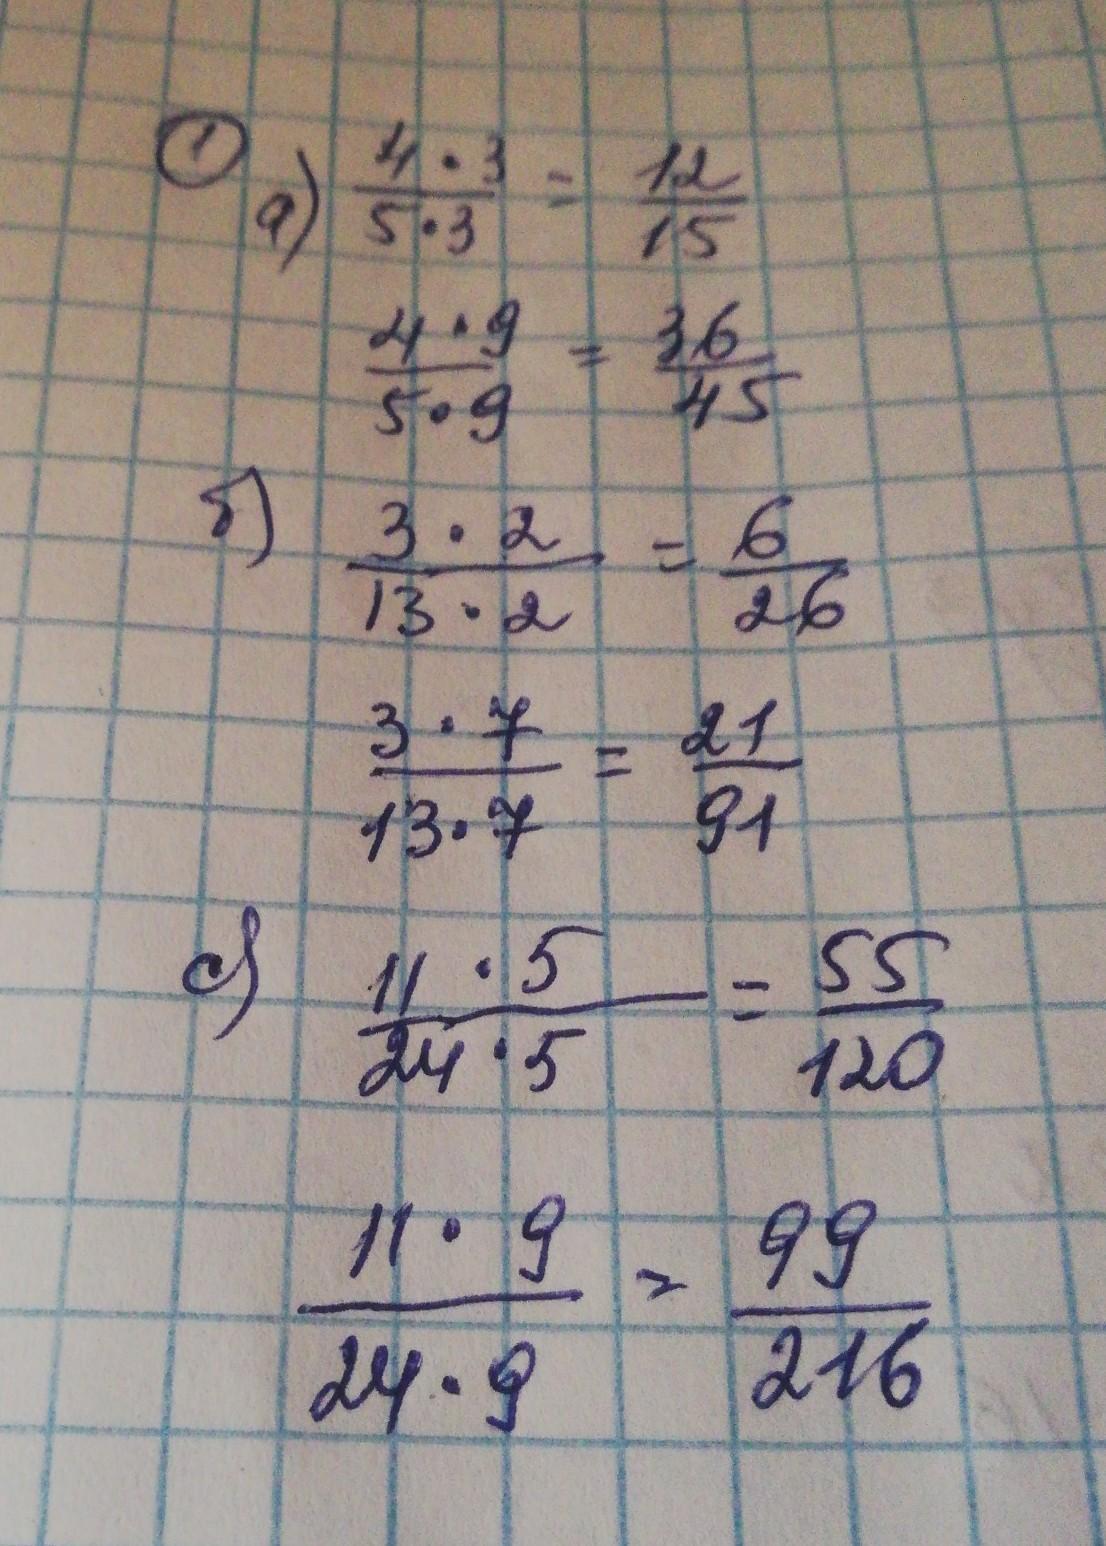 ① а) 4 · 3 / 5 · 3 = 12 / 15
4 · 9 / 5 · 9 = 36 / 45
б) 3 · 2 / 13 · 2 = 6 / 26
3 · 7 / 13 · 7 = 21 / 91
с) 11 · 5 / 24 · 5 = 55 / 120
11 · 9 / 24 · 9 = 99 / 216